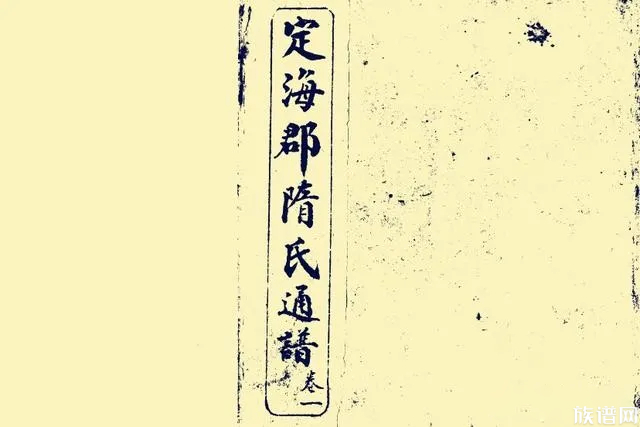 定海郡隋氏通譜
卷一
族谱网